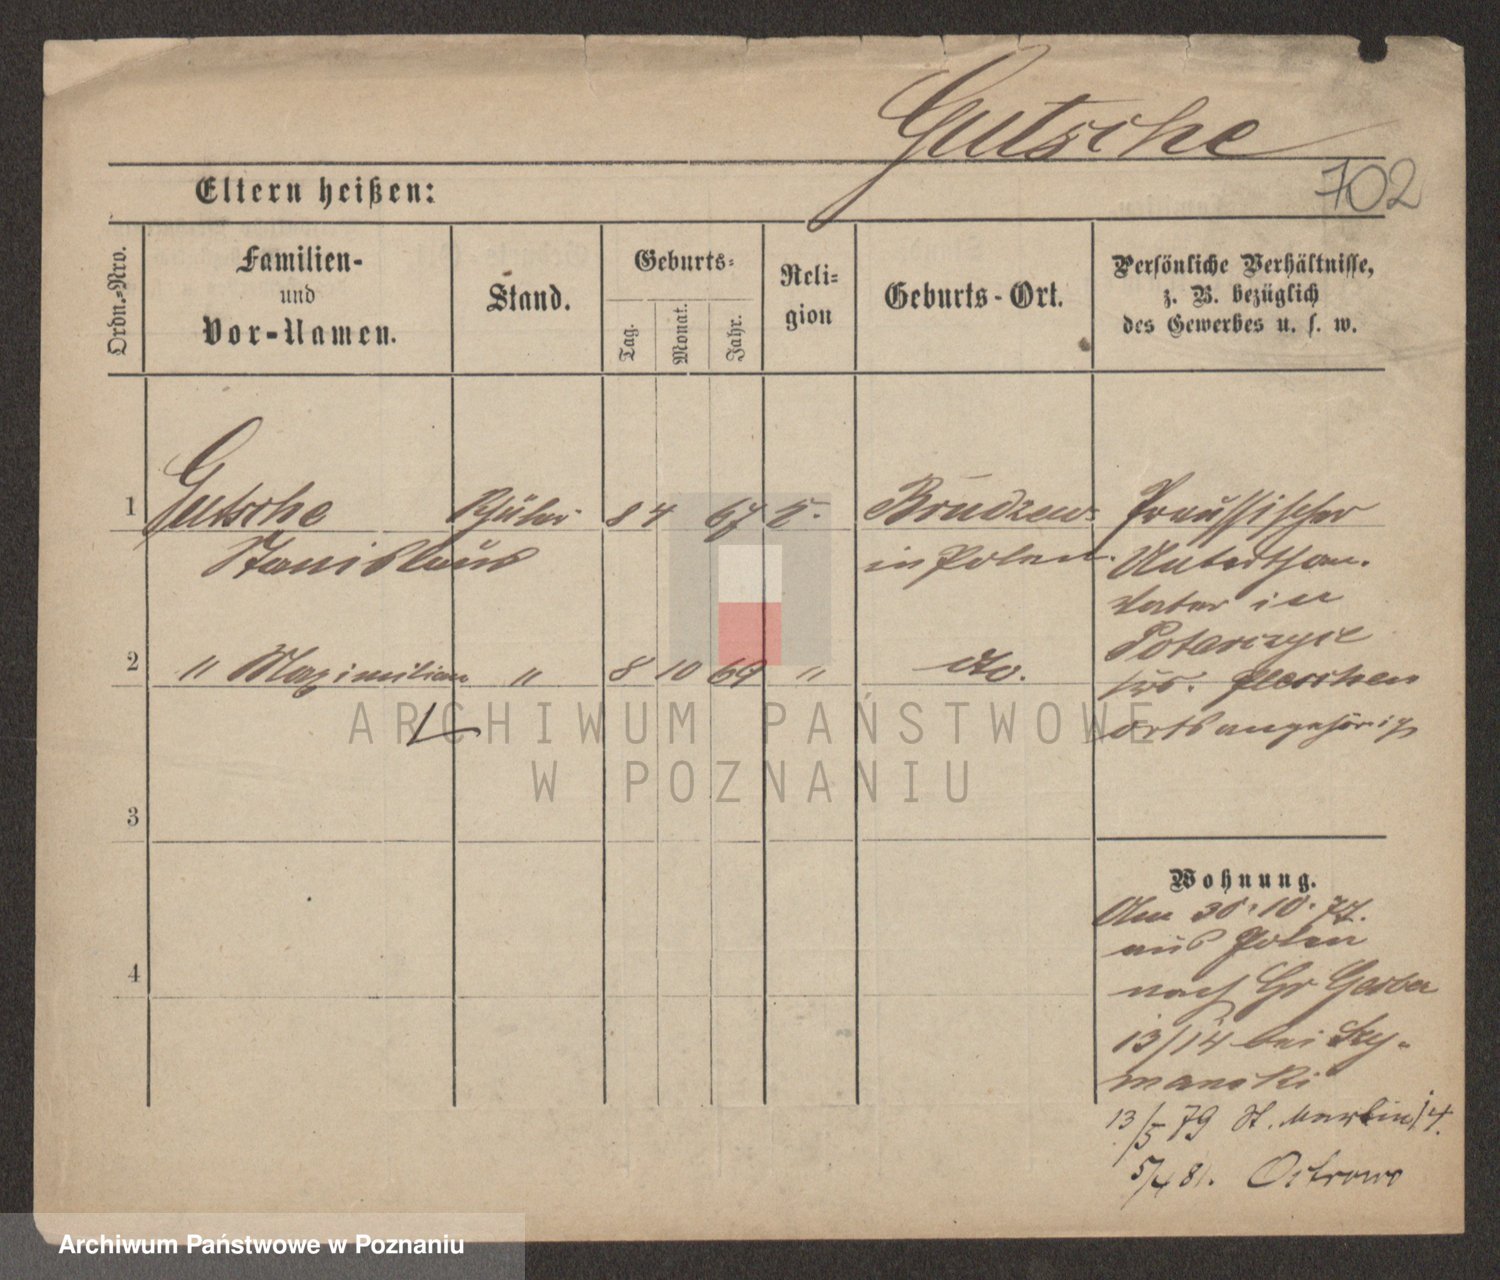 Gutsche
702
Eltern heißen:
Ordn.-Nro.
Familien-
und
Vor-Namen.
Stand.
Geburts-
Tag.
Monat.
Jahr.
Reli-
gion
Geburts-Ort.
Persönliche Verhältnisse,
z. B. bezüglich
des Gewerbes u. s. w.
1 Gutsche Schüler 8 4 67 Brudzew Preussischer
Stanislaus in Polen. Unterthan.
Vater in
2 " Maximilian " 8 10 69 " do.
Pleschen
ortsangehörig
ARCHIWUM PAŃSTWOWE
W POZNANIU
3
Wohnung.
Am 30.10.77.
aus Polen
4
nach Gr Gerber
13/14 bei Szy-
manski
13/5 79 St. Martin 14.
5/4 81. Ostrowo
Archiwum Państwowe w Poznaniu